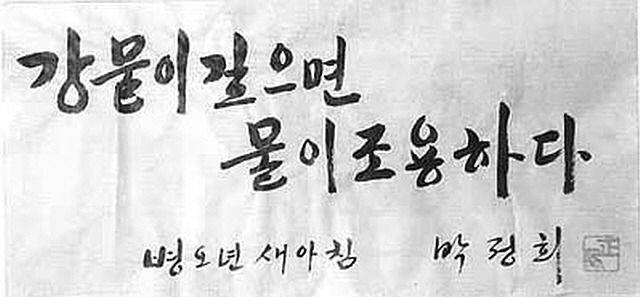 강물이 깊으면
물이 조용하다
병오년 새아침 박정희